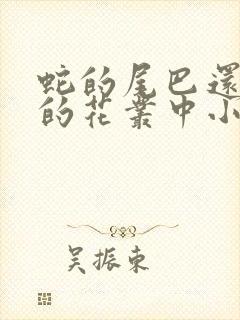 蛇的尾巴還
的花叢中小
吴振東